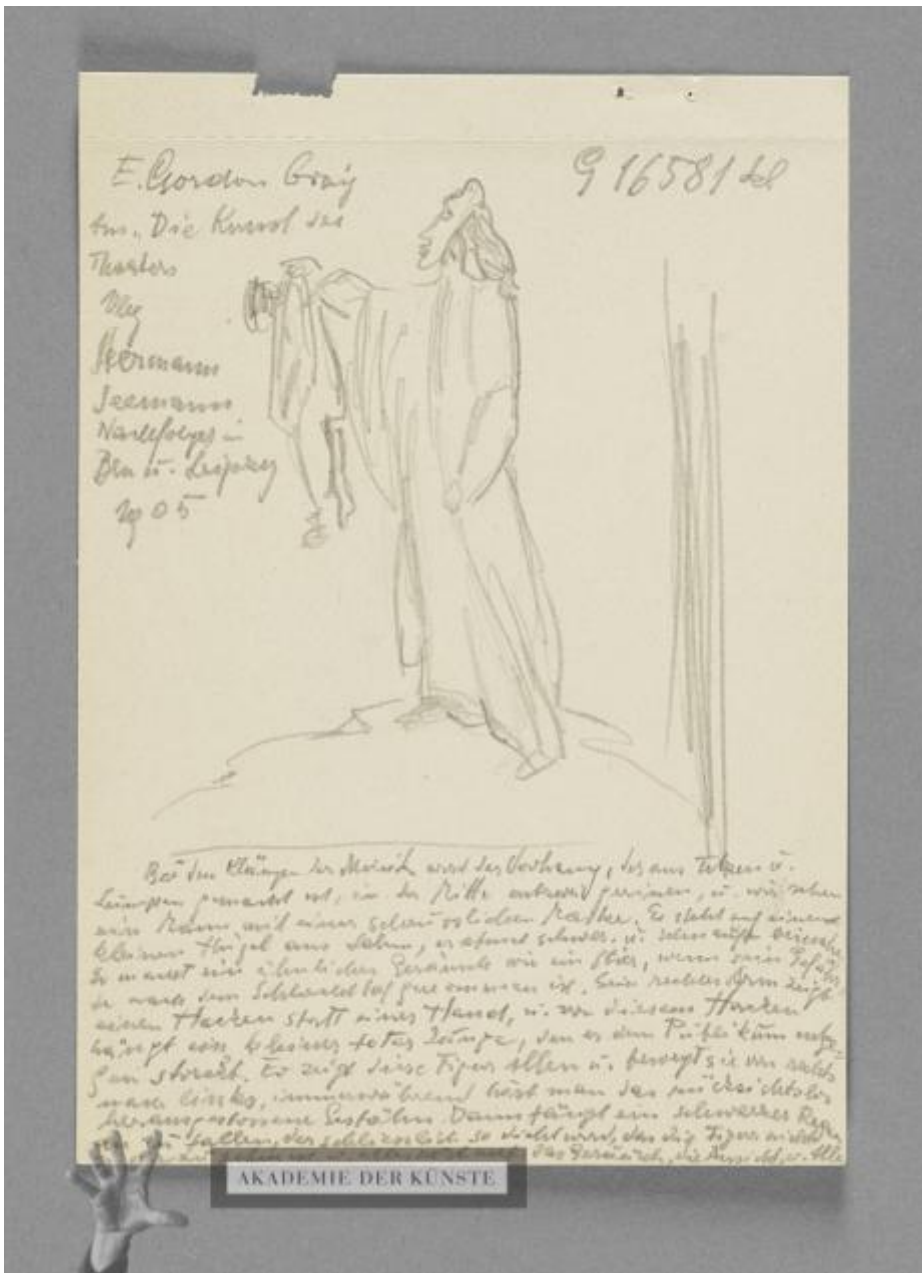 E. Gordon Craig
aus. Die Kunst des
Theaters
Vlg
Hermann
Seemann
Nachfolger in
Bln u. Leipzig
1905
G 16581
Bei den Klängen der Musik wird der Vorhang, der aus Fetzen u.
Lumpen gemacht ist, in der Mitte entzwei gerissen, u. wir sehen
ein Mann mit einer scheusslichen Maske. Er steht auf einem
kleinen Hügel aus Lehm, er atmet schwer. u.
Er macht ein ähnliches Geräusch wie ein Stier, wenn sein
er nach dem gekommen ist. Sein rechter Arm zeigt
einen Hacken statt einer Hand, u. von diesem Hacken
hängt ein kleiner toter Junge, den er dem Publikum
gen streckt. Er zeigt diese Figur allen u. bewegt sie von rechts
nach links, immerwährend hört man das rücksichtslos
herausgestossene Gestöhn. Dann fängt ein schwarzer Regen
zu fallen, der schliesslich so dicht wird, das die Figur nicht
das Geräusch, die u. alle
AKADEMIE DER KÜNSTE